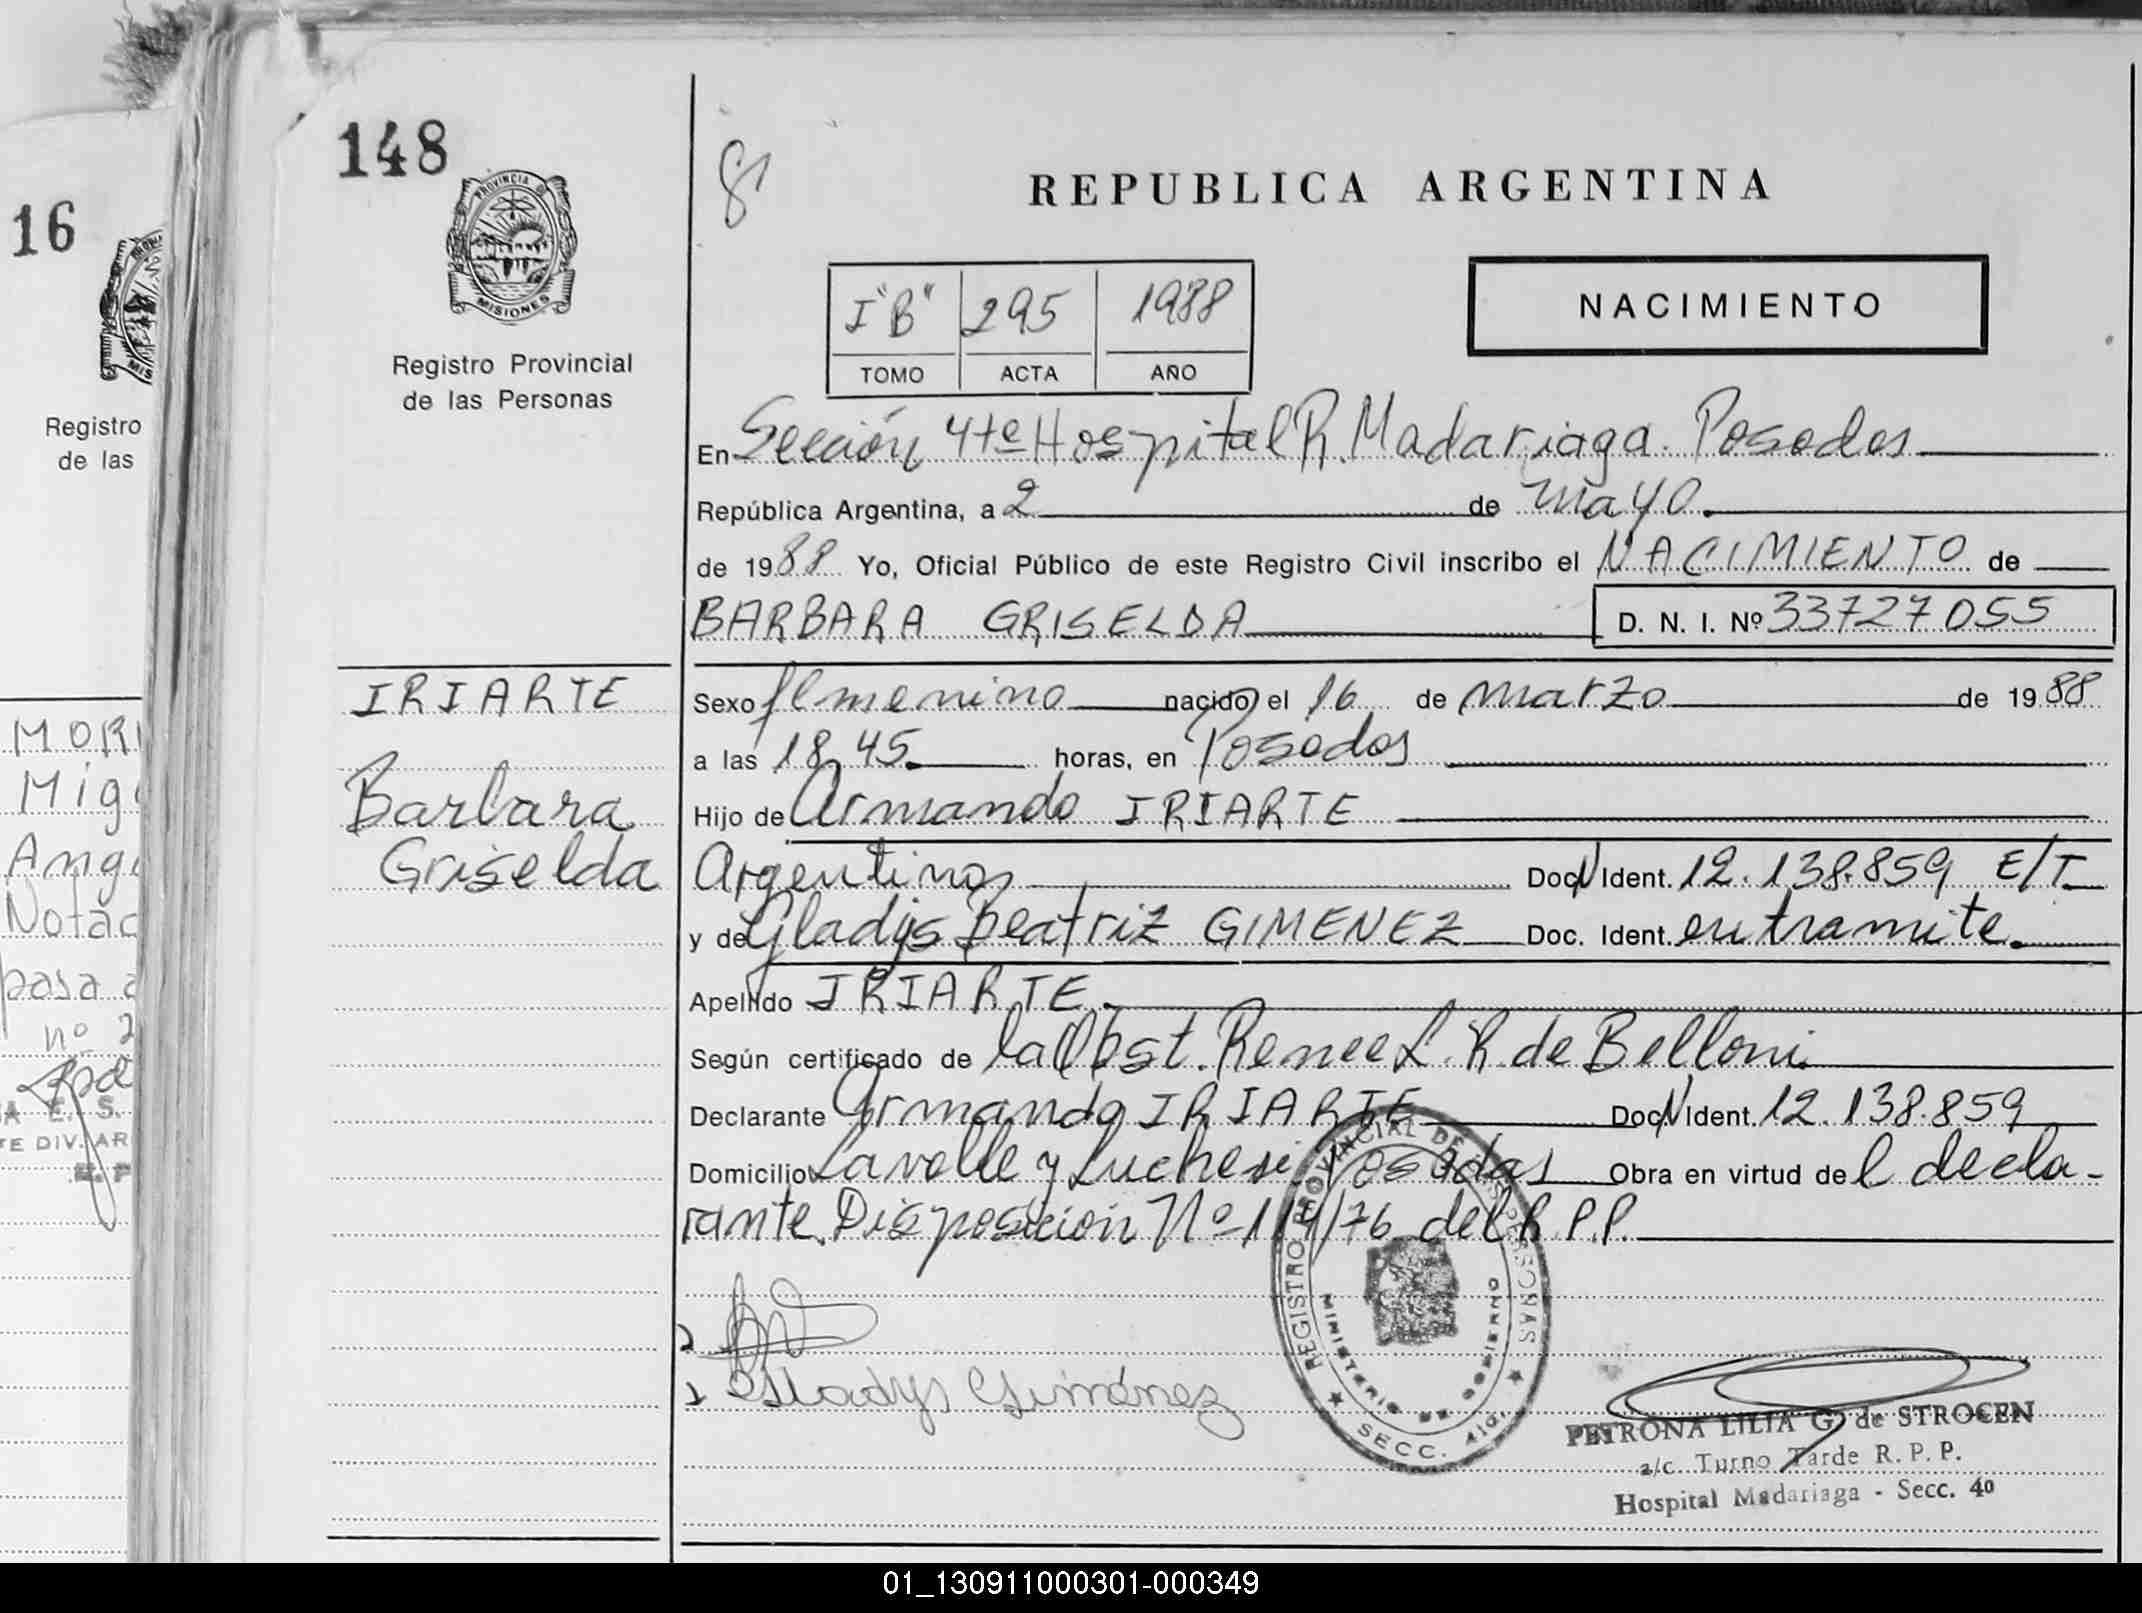 16
Registro
de las
MORI
Migu
Ange
Notac
pasa a
nº 2
A E. S.
TE DIV. AR
148
PROVINCIA DE
MISIONES
Registro Provincial
de las Personas
IRIARTE
Barbara
Griselda
REPUBLICA ARGENTINA
I "B" 295 1988
TOMO ACTA AÑO
NACIMIENTO
En Sección 4ta Hospital R. Madariaga. Posadas
República Argentina, a 2 de mayo
de 1988 Yo, Oficial Público de este Registro Civil inscribo el NACIMIENTO de
BARBARA GRISELDA D. N. I. Nº 33727055
Sexo femenino nacido el 16 de marzo de 1988
a las 18,45 horas, en Posadas
Hijo de Armando IRIARTE
Argentinos Doc N Ident. 12.138.859 E/T
y de Gladys Beatriz GIMENEZ Doc. Ident. en tramite.
Apellido IRIARTE
Según certificado de la Obst. Renee L. R. de Belloni
Declarante Armando IRIARTE Doc N Ident. 12.138.859
Domicilio Lavalle y Luchesi Posadas Obra en virtud del decla-
rante. Disposición Nº 114/76 del R.P.P.
Gladys Giménez
REGISTRO PROVINCIAL DE LAS PERSONAS
MINISTERIO DE GOBIERNO
SECC. 4ta.
PETRONA LILIA G. de STROCEN
a/c. Turno Tarde R. P. P.
Hospital Madariaga - Secc. 4º
01_130911000301-000349